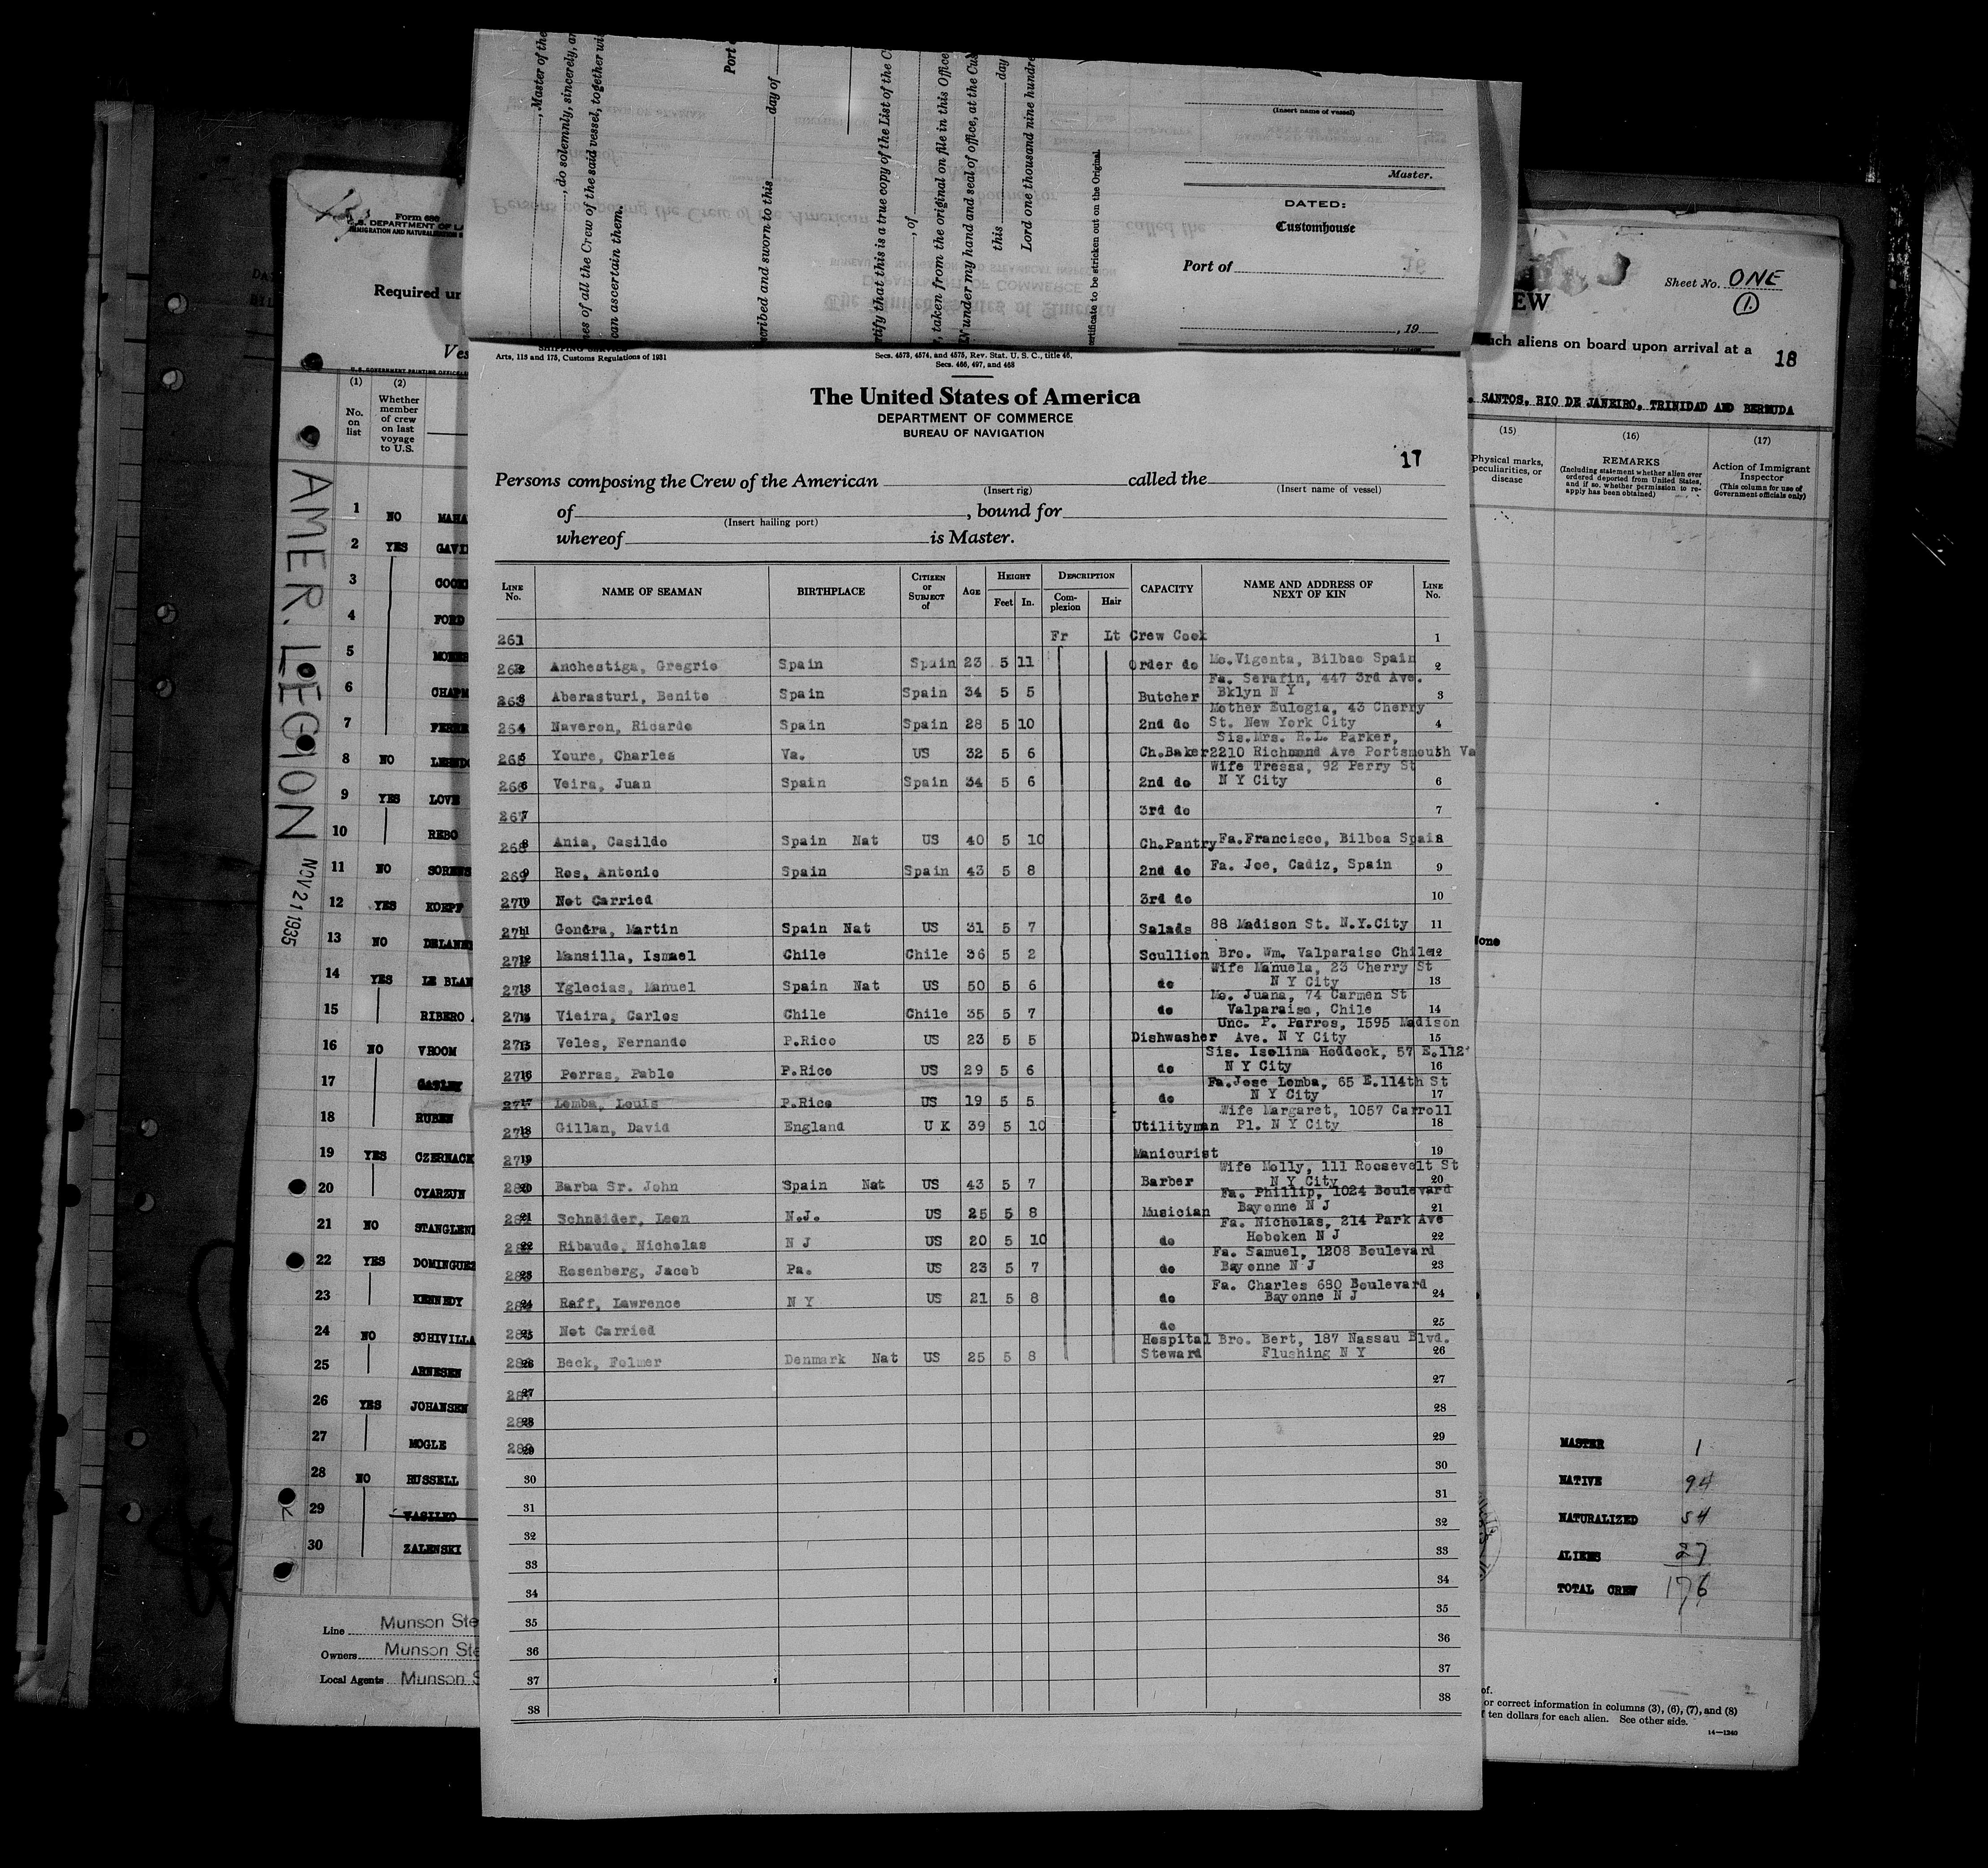 Form 680
U.S. DEPARTMENT OF
IMMIGRATION AND
Required
Ves
(1) (2)
No. on list
Whether member of crew on last voyage to U.S.
1 NO MAHA
2 YES GAVI
3 COOK
4 FORD
5
6 CHAPM
7
8 NO
9 YES LOVE
10 REBO
11 NO SORENS
12 YES KOEPF
13 NO DELANE
14 YES LE BLAN
15 RIBERO
16 NO VROOM
17
18 RUBEN
19 YES CZERNACK
20 OYARZUN
21 NO STANGLEN
22 YES DOMINGUE
23 KENNEDY
24 NO SCHIVILLA
25 ARNESEN
26 YES JOHANSEN
27 MOGLE
28 NO RUSSELL
29 VASILKO
30 ZALENSKI
Line Munson Ste
Owners Munson Ste
Local Agents Munson S
AMER. LEGION NOV 21 1935
, Master of the
, do solemnly, sincerely, an
es of all the Crew of the said vessel, together wi
can ascertain them.
Port o
cribed and sworn to this day of
tify that this is a true copy of the List of the C
, of
, taken from the original on file in this Office
under my hand and seal of office, at the Cus
this day
Lord one thousand nine hundre
ertificate to be stricken out on the Original.
(Insert name of vessel)
Master.
DATED:
Customhouse
Port of
, 19
SHIPPING SERVICE
Arts, 113 and 175, Customs Regulations of 1931
Secs. 4573, 4574, and 4575, Rev. Stat. U. S. C., title 46,
Secs. 466, 497, and 468
The United States of America
DEPARTMENT OF COMMERCE
BUREAU OF NAVIGATION
17
Persons composing the Crew of the American called the
(Insert rig) (Insert name of vessel)
of , bound for
(Insert hailing port)
whereof is Master.
LINE No. NAME OF SEAMAN BIRTHPLACE CITIZEN or SUBJECT of AGE HEIGHT Feet In. DESCRIPTION Complexion Hair CAPACITY NAME AND ADDRESS OF NEXT OF KIN LINE No.
261 Fr Lt Crew Cook 1
262 Anchestiga, Gregrio Spain Spain 23 5 11 Order do Mo.Vigenta, Bilbao Spain 2
263 Aberasturi, Benito Spain Spain 34 5 5 Butcher Fa. Serafin, 447 3rd Ave. Bklyn N Y 3
264 Naveron, Ricardo Spain Spain 28 5 10 2nd do Mother Eulogia, 43 Cherry St. New York City 4
265 Youre, Charles Va. US 32 5 6 Ch.Baker Sis.Mrs. R.L. Parker, 2210 Richmond Ave Portsmouth Va 5
266 Veira, Juan Spain Spain 34 5 6 2nd do Wife Tressa, 92 Perry St N Y City 6
267 3rd do 7
268 Ania, Casildo Spain Nat US 40 5 10 Ch.Pantry Fa.Francisco, Bilboa Spain 8
269 Ros, Antonio Spain Spain 43 5 8 2nd do Fa. Joe, Cadiz, Spain 9
270 Not Carried 3rd do 10
271 Gondra, Martin Spain Nat US 31 5 7 Salads 88 Madison St. N.Y.City 11
272 Mansilla, Ismael Chile Chile 36 5 2 Scullion Bro. Wm. Valparaiso Chile 12
273 Yglecias, Manuel Spain Nat US 50 5 6 do Wife Manuela, 23 Cherry St N Y City 13
274 Vieira, Carlos Chile Chile 35 5 7 do Mo. Juana, 74 Carmen St Valparaiso, Chile 14
275 Veles, Fernando P.Rico US 23 5 5 Dishwasher Unc. P. Parros, 1595 Madison Ave. N Y City 15
276 Porras, Pablo P.Rico US 29 5 6 do Sis. Isolina Heddock, 57 E.112' N Y City 16
277 Lomba, Louis P.Rico US 19 5 5 do Fa.Jose Lomba, 65 E.114th St N Y City 17
278 Gillan, David England U K 39 5 10 Utilityman Wife Margaret, 1057 Carroll Pl. N Y City 18
279 Manicurist 19
280 Barba Sr. John Spain Nat US 43 5 7 Barber Wife Molly, 111 Roosevelt St N Y City 20
281 Schneider, Leon N.J. US 25 5 8 Musician Fa. Phillip, 1024 Boulevard Bayonne N J 21
282 Ribaudo, Nicholas N J US 20 5 10 do Fa. Nicholas, 214 Park Ave Hoboken N J 22
283 Rosenberg, Jacob Pa. US 23 5 7 do Fa. Samuel, 1208 Boulevard Bayonne N J 23
284 Raff, Lawrence N Y US 21 5 8 do Fa. Charles 680 Boulevard Bayonne N J 24
285 Not Carried do 25
286 Beck, Folmer Denmark Nat US 25 5 8 Hospital Steward Bro. Bert, 187 Nassau Blvd. Flushing N Y 26
287 27
288 28
289 29
30 30
31 31
32 32
33 33
34 34
35 35
36 36
37 37
38 38
Sheet No. ONE
(1)
EW
such aliens on board upon arrival at a
18
SANTOS, RIO DE JANEIRO, TRINIDAD AND BERMUDA
(15) (16) (17)
Physical marks, peculiarities, or disease
REMARKS
(Including statement whether alien ever ordered deported from United States, and if so, whether permission to reapply has been obtained)
Action of Immigrant Inspector
(This column for use of Government officials only)
None
MASTER 1
NATIVE 94
NATURALIZED 54
ALIENS 27
TOTAL CREW 176
of.
or correct information in columns (3), (6), (7), and (8)
f ten dollars for each alien. See other side.
14—1240